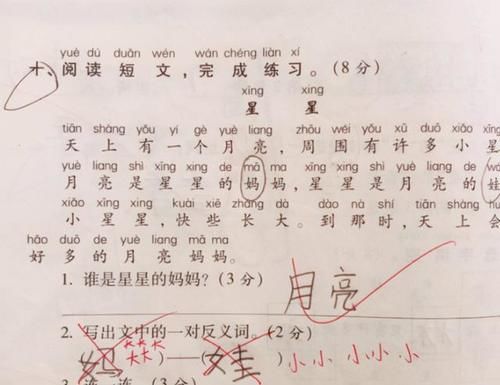 yuè dú duǎn wén wán chéng liàn xí
十、阅读短文，完成练习。(8分)
xīng xīng
星 星
tiān shàng yǒu yí gè yuè liang zhōu wéi yǒu xǔ duō xiǎo xīng
天上有一个月亮，周围有许多小星
yuè liang shì xīng xing de mā ma xīng xing shì yuè liang de wá
月亮是星星的妈妈，星星是月亮的娃
xiǎo xīng xing kuài xiē zhǎng dà dào nà shí tiān shàng
小星星，快些长大。到那时，天上会
hǎo duō de yuè liang mā ma
好多的月亮妈妈。
1. 谁是星星的妈妈？(3分)
月亮
2. 写出文中的一对反义词。(2分)
(妈 大大大大大)——(娃)小小小小小